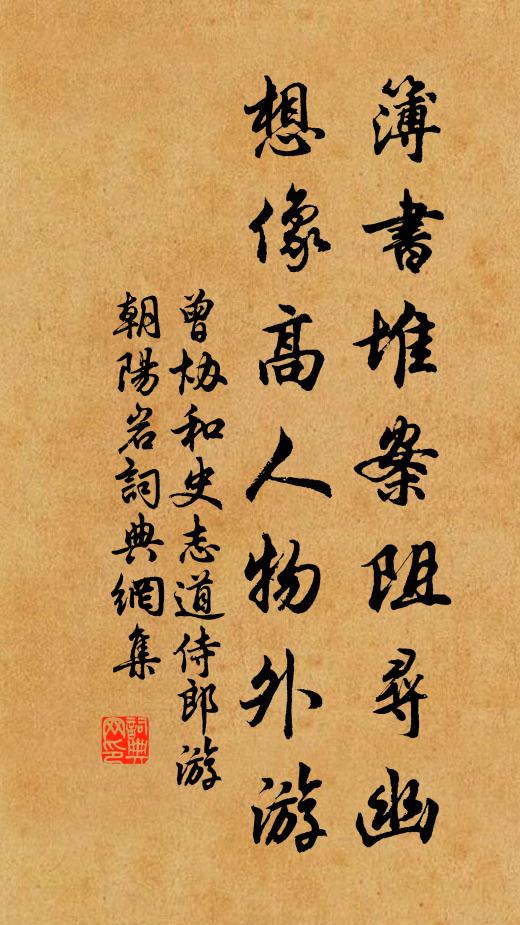 簿書堆案阻尋幽
想像高人物外游
曾协和史志道侍郎游
朝陽岩詞典網集
詞典网印